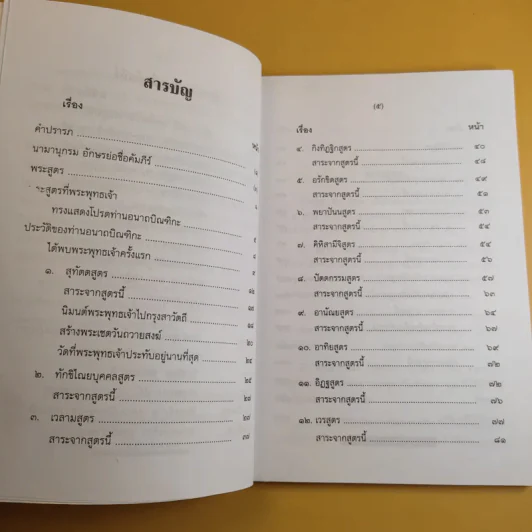 สารบัญ
เรื่อง
คำปรารภ
นามานุกรม อักษรย่อชื่อคัมภีร์
พระสูตร
ทรงแสดงโปรดท่านอนาถบิณฑิกะ
ประวัติของท่านอนาถบิณฑิกะ
ได้พบพระพุทธเจ้าครั้งแรก
๑. สุทัตตสูตร
สาระจากสูตรนี้
นิมนต์พระพุทธเจ้าไปกรุงสาวัตถี
สร้างพระเชตวันถวายสงฆ์ ๒๐
วัดที่พระพุทธเจ้าประทับอยู่นานที่สุด ๒๔
๒. ทักขิไณยบุคคลสูตร ๒๕
สาระจากสูตรนี้
๓. เวลามสูตร ๒๙
สาระจากสูตรนี้ ๓๗
(๕)
เรื่อง หน้า
๔. กิงทิฏฐิกสูตร ๔๐
สาระจากสูตรนี้ ๔๘
๕. อรักขิตสูตร ๔๙
สาระจากสูตรนี้ ๕๑
๖. พยาปันนสูตร ๕๓
สาระจากสูตรนี้ ๕๔
๗. คิหิสามีจิสูตร ๕๔
สาระจากสูตรนี้ ๕๖
๘. ปัตตกรรมสูตร ๕๗
สาระจากสูตรนี้ ๖๓
๙. อานัณยสูตร ๖๔
สาระจากสูตรนี้ ๖๗
๑๐. อาทิยสูตร ๖๙
สาระจากสูตรนี้
๑๑. อิฏฐสูตร ๗๒
สาระจากสูตรนี้ ๗๖
๑๒. เวรสูตร ๗๗
สาระจากสูตรนี้ ๘๑